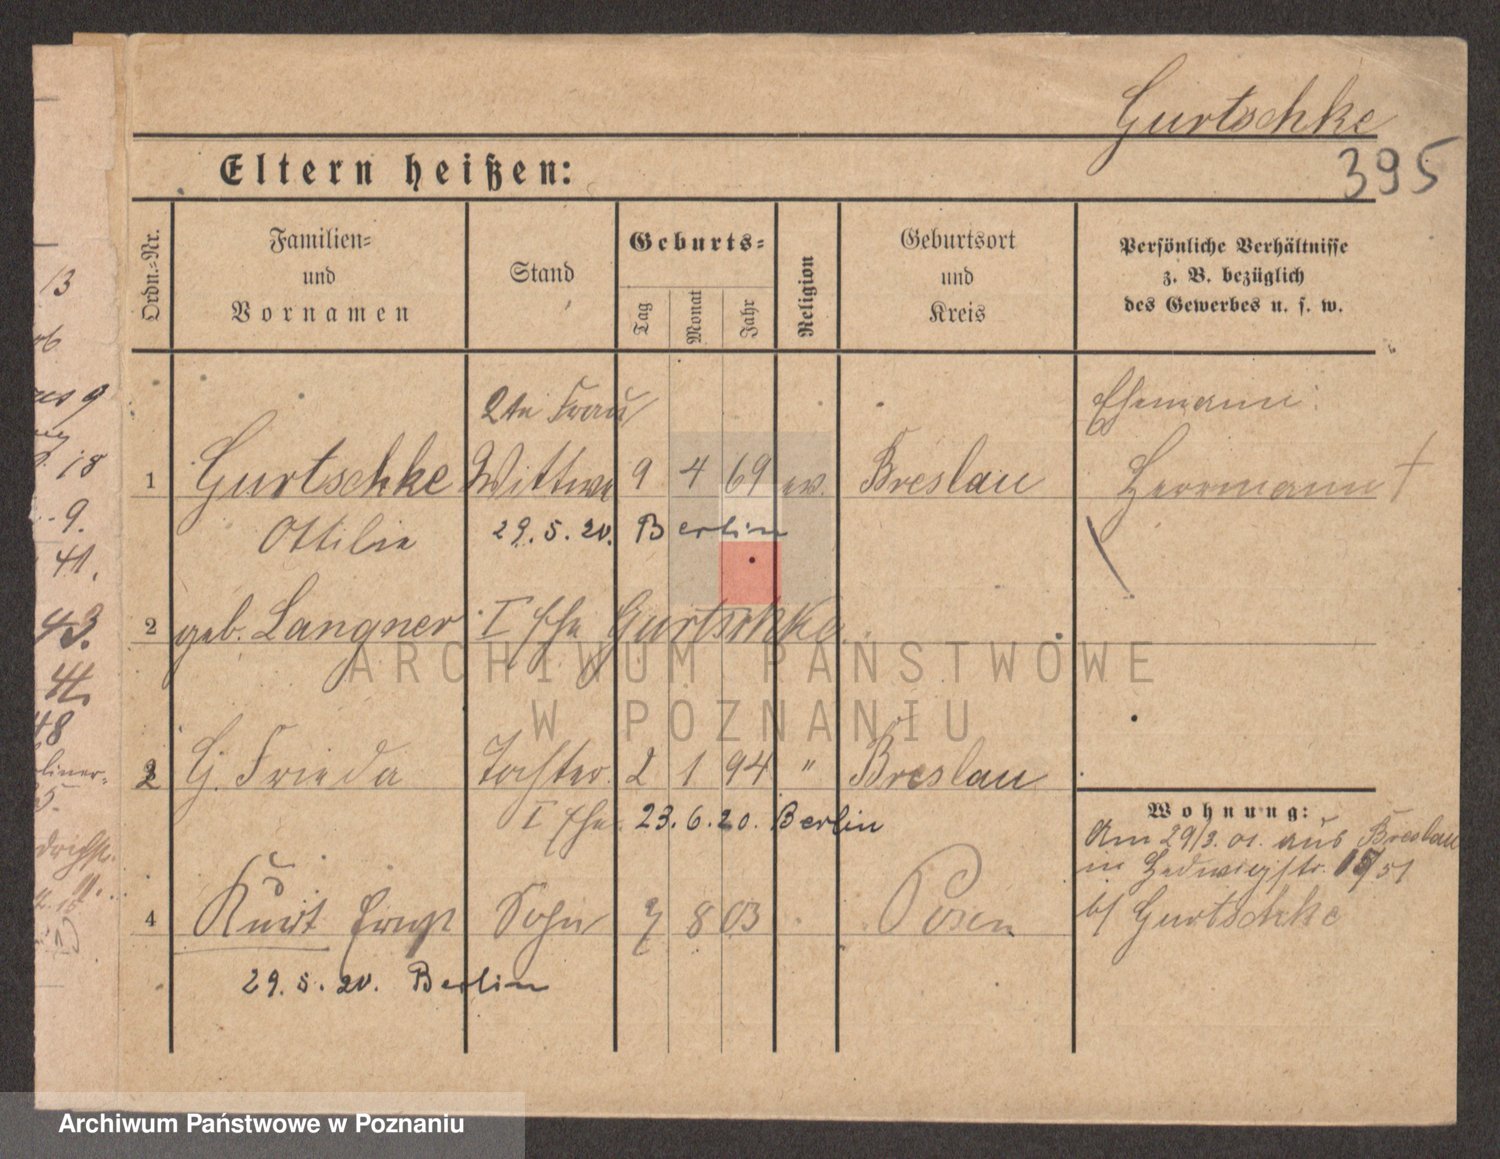 Gurtschke
395
Eltern heißen:
Ordn.-Nr.
Familien-
und
Vornamen
Stand
Geburts-
Tag
Monat
Jahr
Religion
Geburtsort
und
Kreis
Persönliche Verhältnisse
z. B. bezüglich
des Gewerbes u. s. w.
2te Frau Ehemann
1 Gurtschke Wittwe 9 4 69 ev. Breslau Herrmann †
Ottilie 29. 5. 20. Berlin
2 geb. Langner I Ehe Gurtschke
ARCHIWUM PAŃSTWOWE
W POZNANIU
3 G. Frieda Tochter 2 1 94 " Breslau
I Ehe. 23. 6. 20. Berlin
4 Kurt Ernst Sohn 7 8 03 Posen
29. 5. 20. Berlin
Wohnung:
Am 29/3. 01. aus Breslau
in Hedwigstr. 15/51
b/ Gurtschke
13
9
18
9.
41.
43.
44.
48
Archiwum Państwowe w Poznaniu